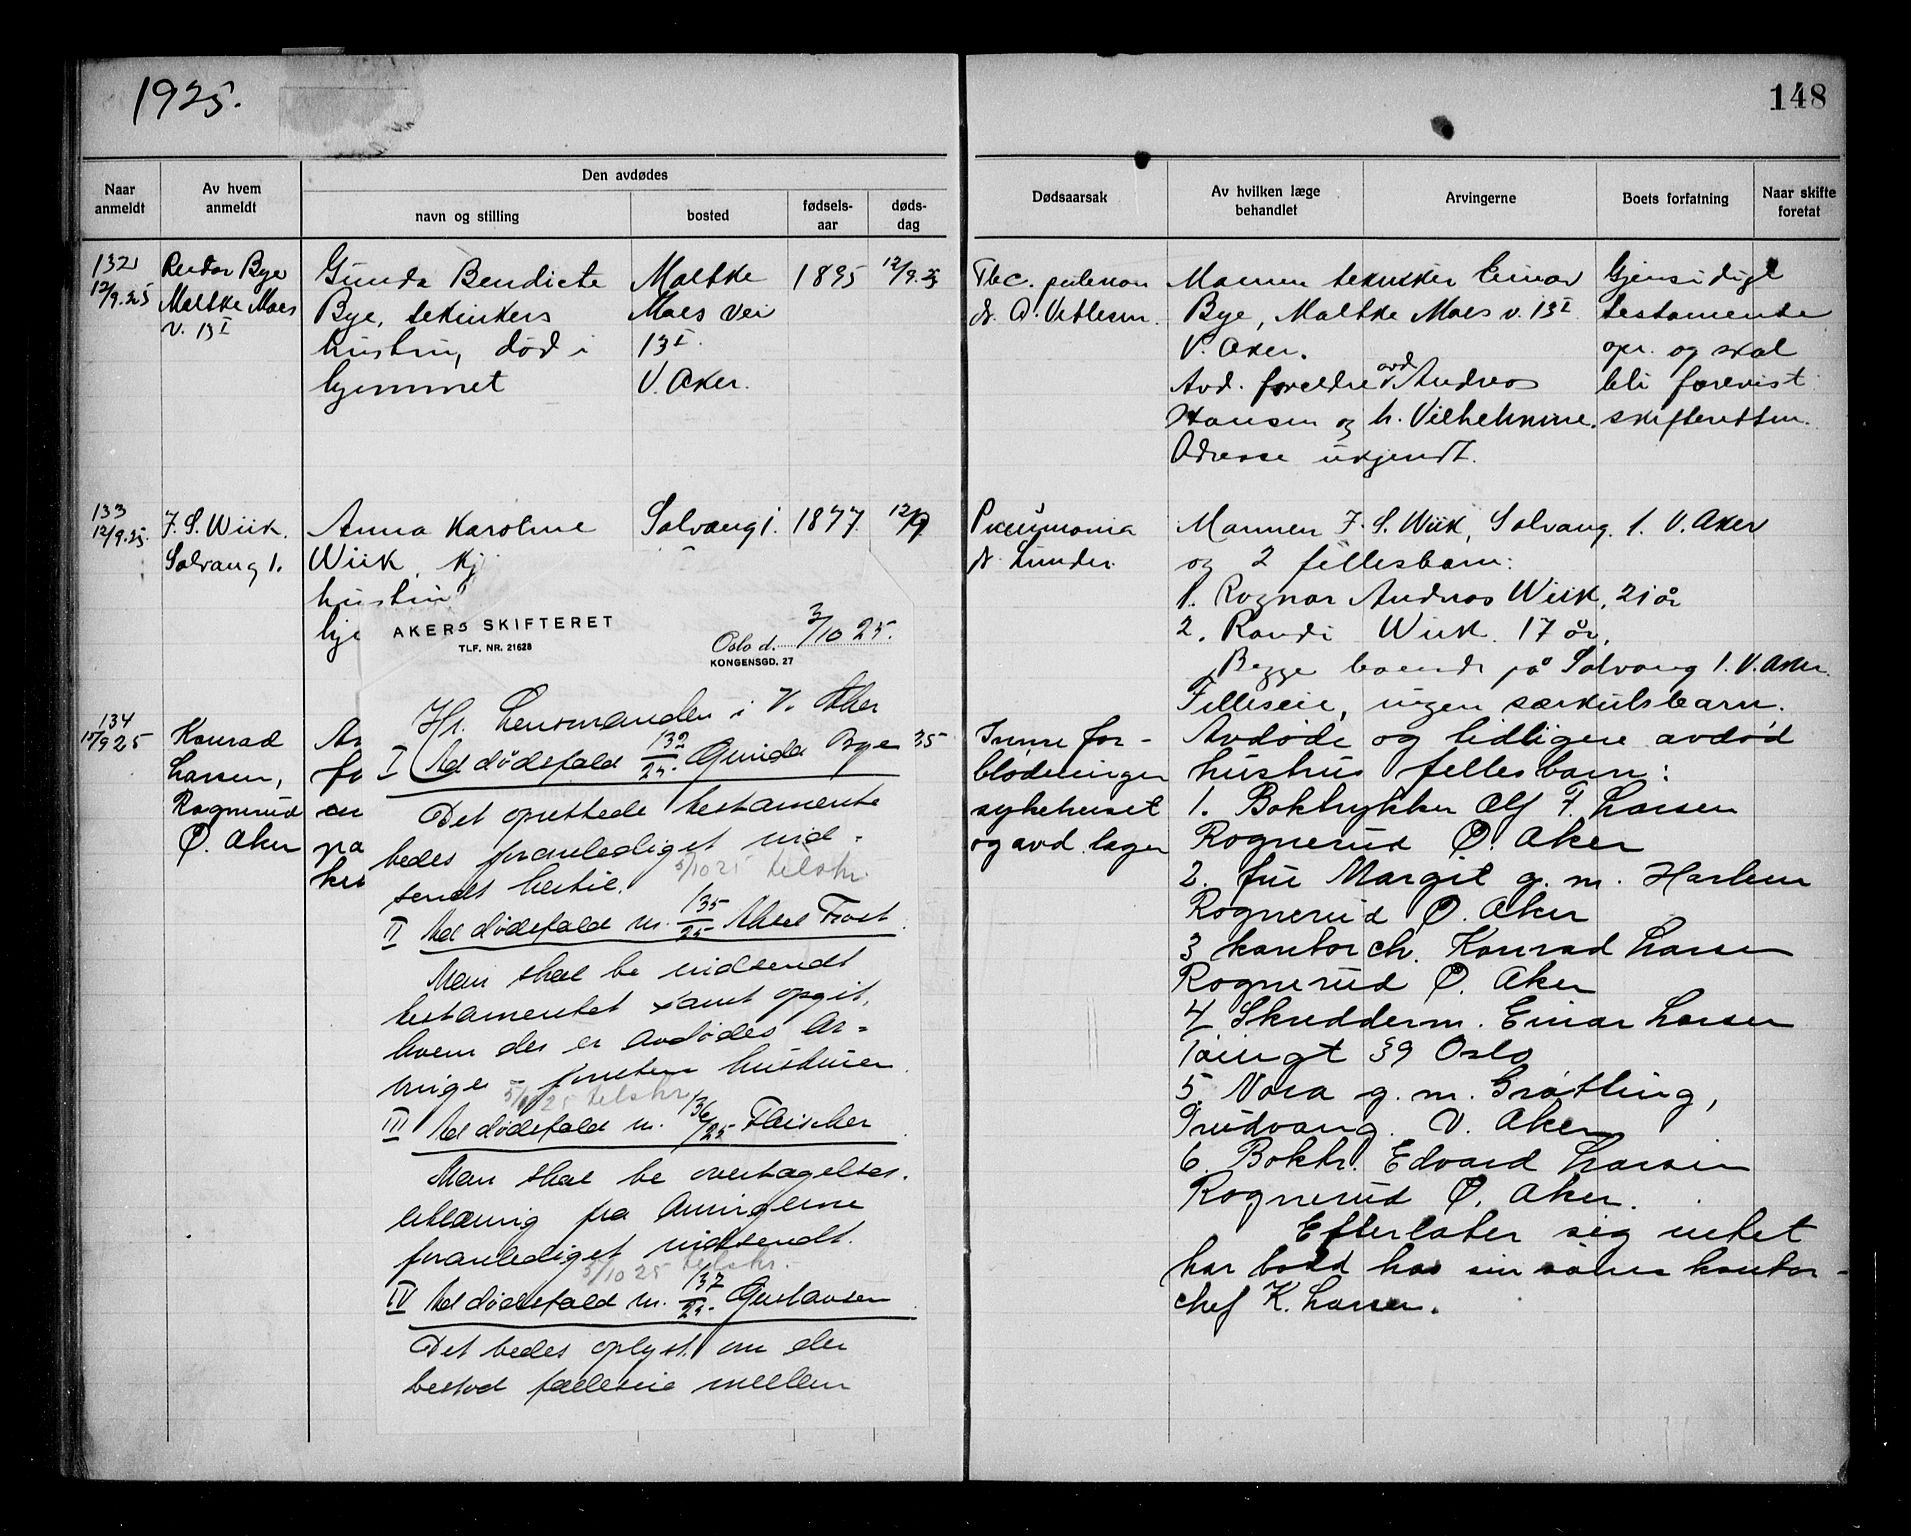 1925.
148
Naar anmeldt
Av hvem anmeldt
Den avdødes
navn og stilling
bosted
fødsels-aar
døds-dag
Dødsaarsak
Av hvilken læge behandlet
Arvingerne
Boets forfatning
Naar skifte foretat
132
12/9.25
Bye
Moltke Moes
v. 13 I
Gunda Bendicte
Bye, teknikers
hustru, død i
hjemmet
Moltke
Moes vei
13 I.
V. Aker.
1895
12/9.25
Tbc. pulmon
dr. A. Vetlesen.
Mannen tekniker Einar
Bye, Moltke Moes v. 13 I
V. Aker.
Avd. foreldre avd. Andreas
Hansen og h. Vilhelmine.
Adresse ukjendt.
Gjensidigt
testamente
opr. og skal
bli forevist
skifteretten.
133
12/9.25.
F. S. Wiik.
Solvang 1.
Anna Karoline
Wiik, kj
hustru
hje
Solvang 1.
1877
12/9
Pneumonia
dr. Lunder.
Mannen F. S. Wiik, Solvang 1. V. Aker
og 2 fellesbarn:
1. Ragnar Andreas Wiik, 21 år
2. Randi Wiik. 17 år.
Begge boende på Solvang 1. V. Aker.
Felleseie, ingen særkulsbarn.
134
15/9 25
Konrad
Larsen,
Rognerud
Ø. Aker
An
fo
en
pa
kre
25
Indre for-
blødninger
sykehuset
og avd. læger
Avdøde og tidligere avdød
hustrus fellesbarn:
1. Boktrykker Alf F. Larsen
Rognerud Ø. Aker
2. fru Margit g. m. Harlem
Rognerud Ø. Aker
3 kontorch. Konrad Larsen
Rognerud Ø. Aker
4 Skredderm. Einar Larsen
Tøiengt 39 Oslo
5. Nora g. m. Grøtling,
Trudvang. V. Aker
6. Boktr. Edvard Larsen
Rognerud Ø. Aker.
Efterlater sig intet
har bodd hos sin sønn kontor-
chef K. Larsen.
AKERS SKIFTERET
TLF. NR. 21628
Oslo d. 3/10 25.
KONGENSGD. 27
Hr. Lensmanden i V. Aker
I Ad dødsfald 132/25. Gunda Bye
Det oprettede testamente
bedes foranlediget ind-
sendt hertil. 5/10 25 tilskr.
II Ad dødsfald nr. 135/25 Trost
Man skal be indsendt
testamentet samt opgit,
hvem der er avdødes ar-
vinge - foruten hustruen.
5/10 25 tilskr.
III Ad dødsfald nr. 136/25 Fleischer
Man skal be overtagelses-
erklæring fra arvingerne
foranlediget indsendt.
5/10 25 tilskr.
IV Ad dødsfald nr. 137/25. Gustavsen
Det bedes oplyst om der
bestod fælleseie mellem